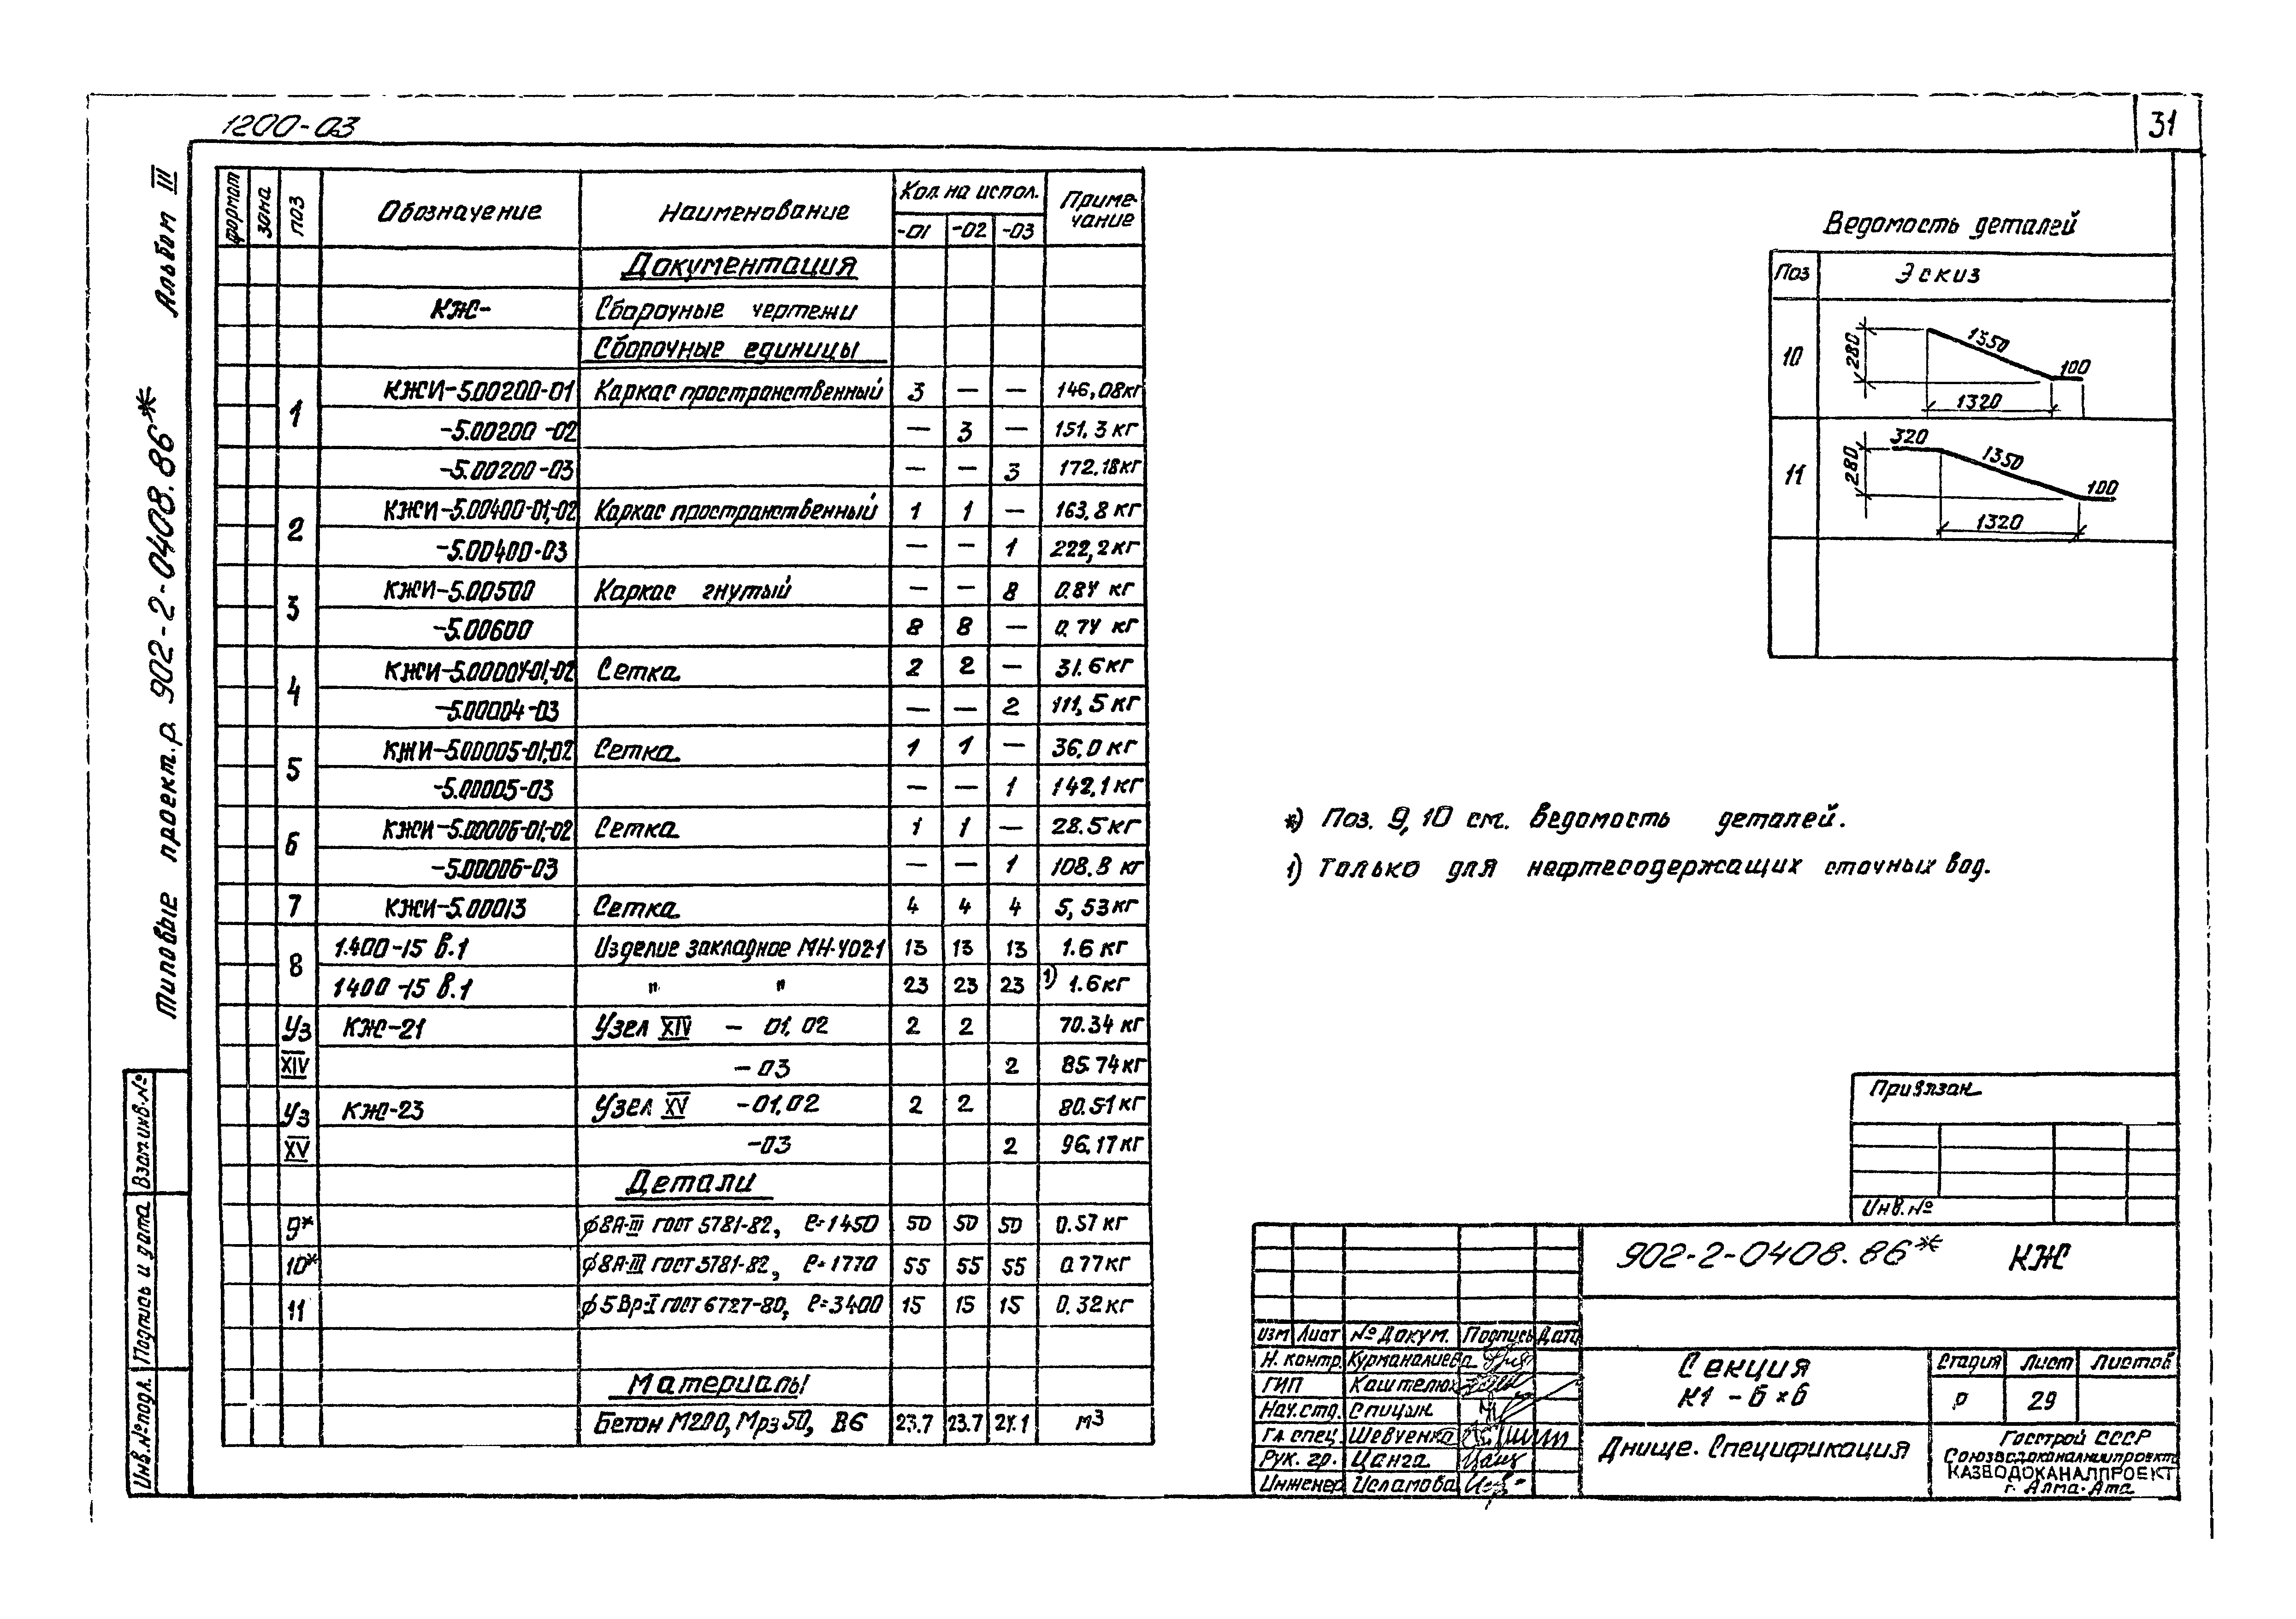 1200-03
31
Альбом III
Типовые проект.р. 902-2-0408.86*
формат зона поз Обозначение Наименование Кол на испол. Приме-чание
-01 -02 -03
Документация
КЖ- Сборочные чертежи
Сборочные единицы
1 КЖИ-5.00200-01 Каркас пространственный 3 — — 146,08кг
-5.00200-02 — 3 — 151.3кг
-5.00200-03 — — 3 172.18кг
2 КЖИ-5.00400-01,-02 Каркас пространственный 1 1 — 163.8кг
-5.00400-03 — — 1 222,2кг
3 КЖИ-5.00500 Каркас гнутый — — 8 0.84 кг
-5.00600 8 8 — 0.74 кг
4 КЖИ-5.00004-01,-02 Сетка 2 2 — 31.6кг
-5.00004-03 — — 2 111,5кг
5 КЖИ-5.00005-01,-02 Сетка 1 1 — 36.0кг
-5.00005-03 — — 1 142.1кг
6 КЖИ-5.00006-01,-02 Сетка 1 1 — 28.5кг
-5.00006-03 — — 1 108.8 кг
7 КЖИ-5.00013 Сетка 4 4 4 5,53кг
8 1.400-15 в.1 Изделие закладное МН-402-1 13 13 13 1.6 кг
1400-15 в.1 " " 23 23 23 1) 1.6кг
Уз КЖ-21 Узел XIV - 01.02 2 2 70.34 кг
XIV -03 2 85.74кг
Уз КЖ-23 Узел XV -01.02 2 2 80.51кг
XV -03 2 96.17кг
Детали
9* ϕ8А-III ГОСТ 5781-82, ℓ=1450 50 50 50 0.57 кг
10* ϕ8А-III ГОСТ 5781-82, ℓ=1770 55 55 55 0.77кг
11 ϕ5Вр-I ГОСТ 6727-80, ℓ=3400 15 15 15 0.32кг
Материалы
Бетон М200, Мрз50, В6 23.7 23.7 24.1 м3
Ведомость деталей
Поз Эскиз
10 280 1350 100 1320
11 320 280 1350 100 1320
*) Поз. 9,10 см. ведомость деталей.
1) Только для нефтесодержащих сточных вод.
Привязан
Инв.№
902-2-0408.86* КЖ
Изм Лист № Докум. Подпись Дата
Н. контр. Курманалиева
ГИП Каштелюк
Нач.отд. Спицын
Гл. спец. Шевченко
Рук. гр. Цанга
Инженер Исламова
Секция
К1 - 6×6
Стадия Лист Листов
Р 29
Днище. Спецификация
Госстрой СССР
Союзводоканалниипроект
КАЗВОДОКАНАЛПРОЕКТ
г. Алма-Ата
Взам.инв.№
Подпись и дата
Инв.№подл.